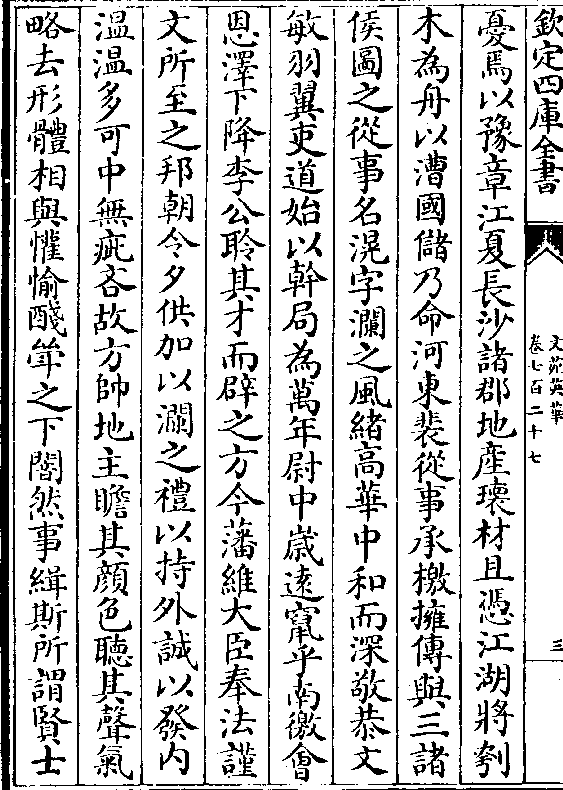 欽定四庫全書
文苑英華
卷七百二十七
三
憂焉以豫章江夏長沙諸郡地産瓌材且憑江湖將刳
木為舟以漕國儲乃命河東裴從事承檄擁傳與三諸
侯圖之從事名滉字瀾之風緒高華中和而深敬恭文
敏羽翼吏道始以幹局為萬年尉中嵗逺竄乎南徼會
恩澤下降李公聆其才而辟之方今藩維大臣奉法謹
文所至之邦朝令夕供加以瀾之禮以持外誠以發内
温温多可中無疵吝故方帥地主瞻其顔色聽其聲氣
略去形體相與懽愉醆斚之下闇然事緝斯所謂賢士